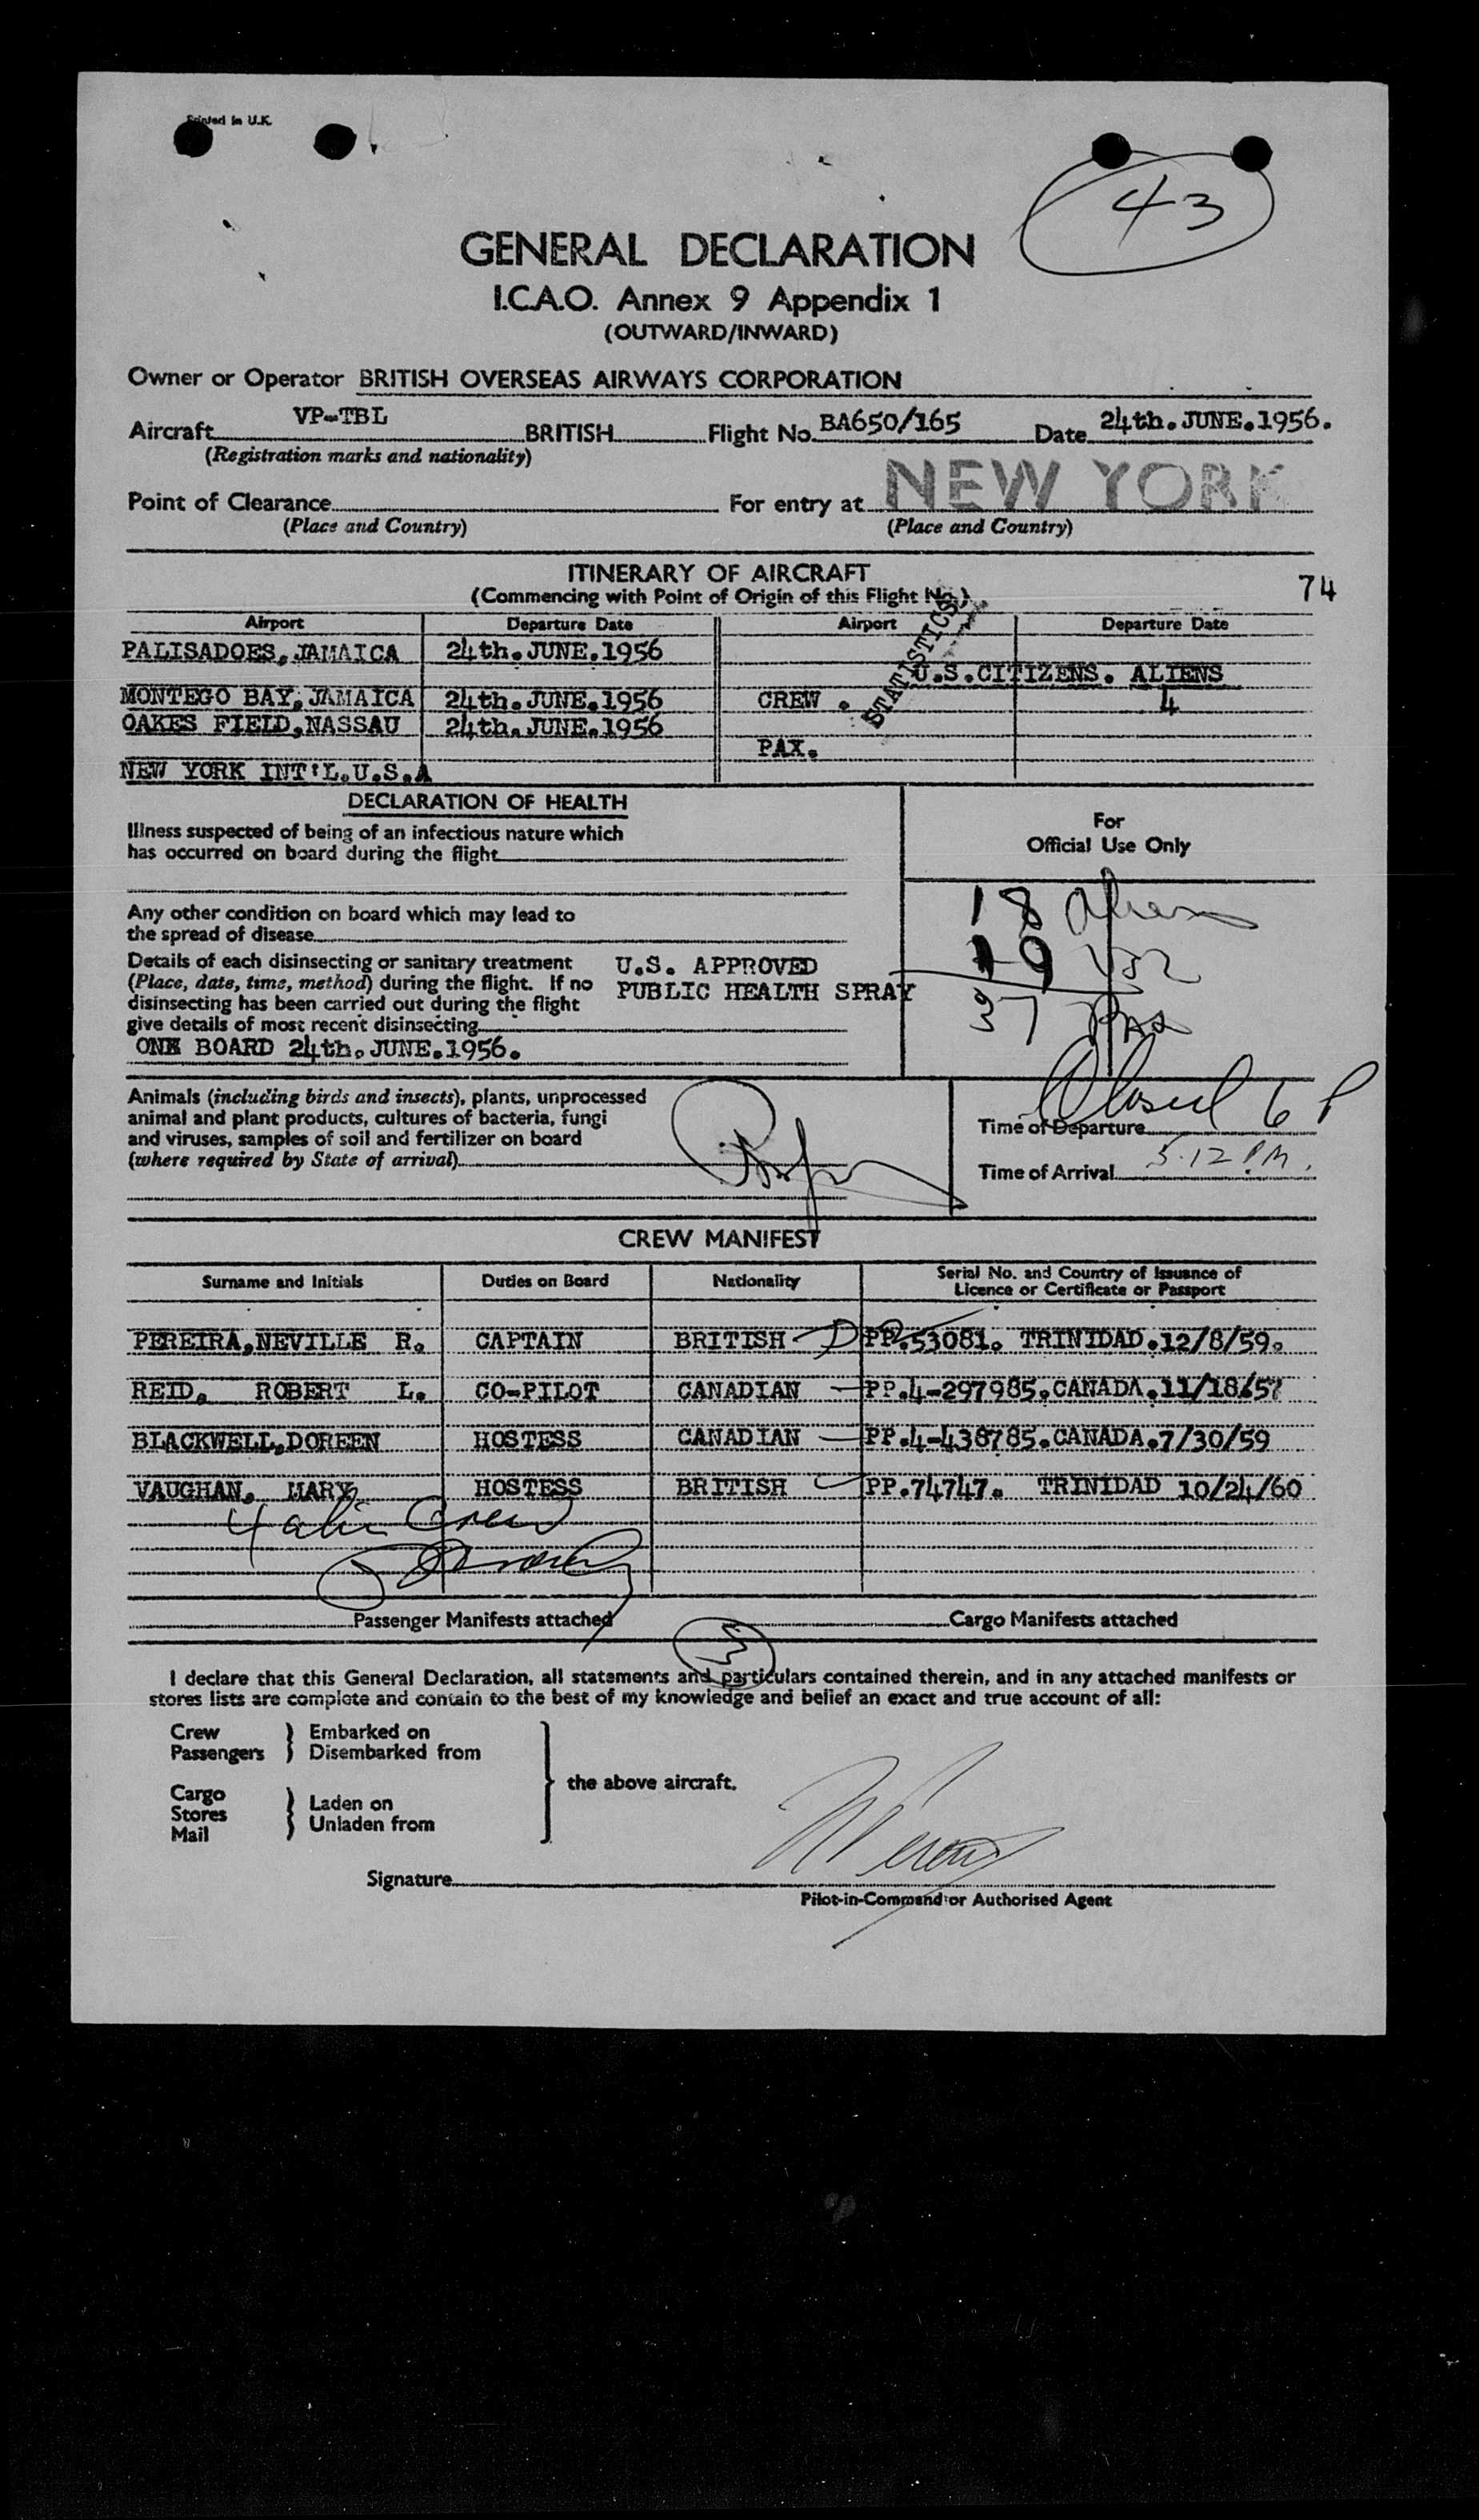 Printed in U.K.
43
GENERAL DECLARATION
I.C.A.O. Annex 9 Appendix 1
(OUTWARD/INWARD)
Owner or Operator BRITISH OVERSEAS AIRWAYS CORPORATION
Aircraft VP-TBL BRITISH Flight No. BA650/165 Date 24th.JUNE.1956.
(Registration marks and nationality)
Point of Clearance For entry at NEW YORK
(Place and Country) (Place and Country)
ITINERARY OF AIRCRAFT
(Commencing with Point of Origin of this Flight No.) 74
Airport Departure Date Airport Departure Date
STATISTICS
PALISADOES,JAMAICA 24th.JUNE.1956
U.S.CITIZENS. ALIENS
MONTEGO BAY,JAMAICA 24th.JUNE.1956 CREW . 4
OAKES FIELD,NASSAU 24th.JUNE.1956
PAX.
NEW YORK INT'L.U.S.A
DECLARATION OF HEALTH
For
Official Use Only
Illness suspected of being of an infectious nature which
has occurred on board during the flight
18 Aliens
19 USZ
37 Pax
Any other condition on board which may lead to
the spread of disease
Details of each disinsecting or sanitary treatment U.S. APPROVED
(Place, date, time, method) during the flight. If no PUBLIC HEALTH SPRAY
disinsecting has been carried out during the flight
give details of most recent disinsecting
ONE BOARD 24th.JUNE.1956.
Animals (including birds and insects), plants, unprocessed
animal and plant products, cultures of bacteria, fungi
and viruses, samples of soil and fertilizer on board
(where required by State of arrival)
Closed 6 P
Time of Departure
Time of Arrival 5.12 P.M.
CREW MANIFEST
Surname and Initials Duties on Board Nationality Serial No. and Country of Issuance of
Licence or Certificate or Passport
PEREIRA,NEVILLE R. CAPTAIN BRITISH PP.53081. TRINIDAD.12/8/59.
REID, ROBERT L. CO-PILOT CANADIAN PP.4-297985.CANADA.11/18/57
BLACKWELL,DOREEN HOSTESS CANADIAN PP.4-438785.CANADA.7/30/59
VAUGHAN, MARY. HOSTESS BRITISH PP.74747. TRINIDAD 10/24/60
4 alien Crew
Passenger Manifests attached Cargo Manifests attached
3
I declare that this General Declaration, all statements and particulars contained therein, and in any attached manifests or
stores lists are complete and contain to the best of my knowledge and belief an exact and true account of all:
Crew Embarked on
Passengers Disembarked from
the above aircraft.
Cargo
Stores Laden on
Mail Unladen from
Signature
Pilot-in-Command or Authorised Agent